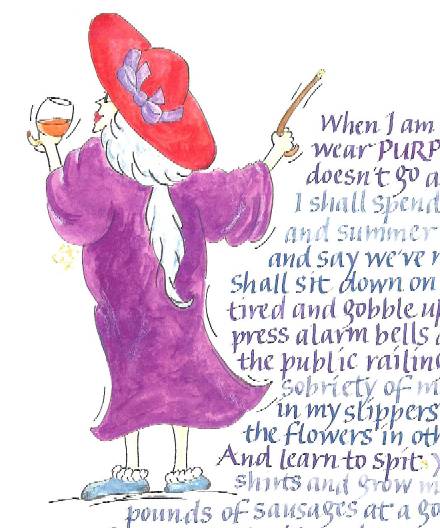 When I am
wear PURP
doesn't go a
I shall spend
and summer
and say we've n
Shall sit down on
tired and gobble up
press alarm bells a
the public railing
sobriety of m
in my slippers
the flowers in oth
And learn to spit
shirts and grow m
pounds of sausages at a go